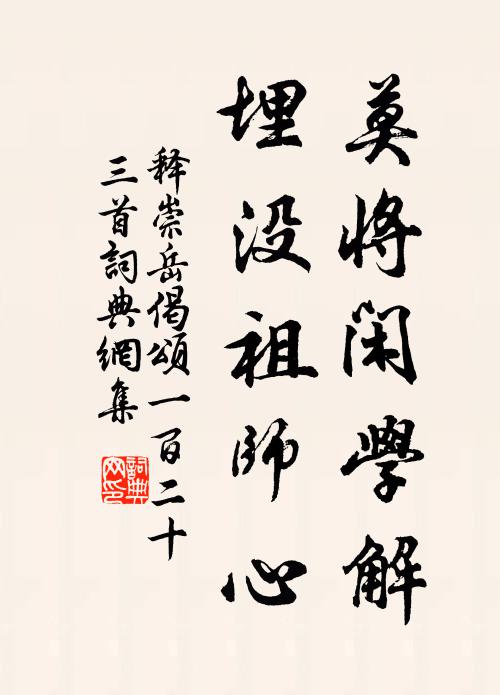 莫將閑學解
埋没祖師心
释崇岳偈頌一百二十
三首詞典網集
詞典网印